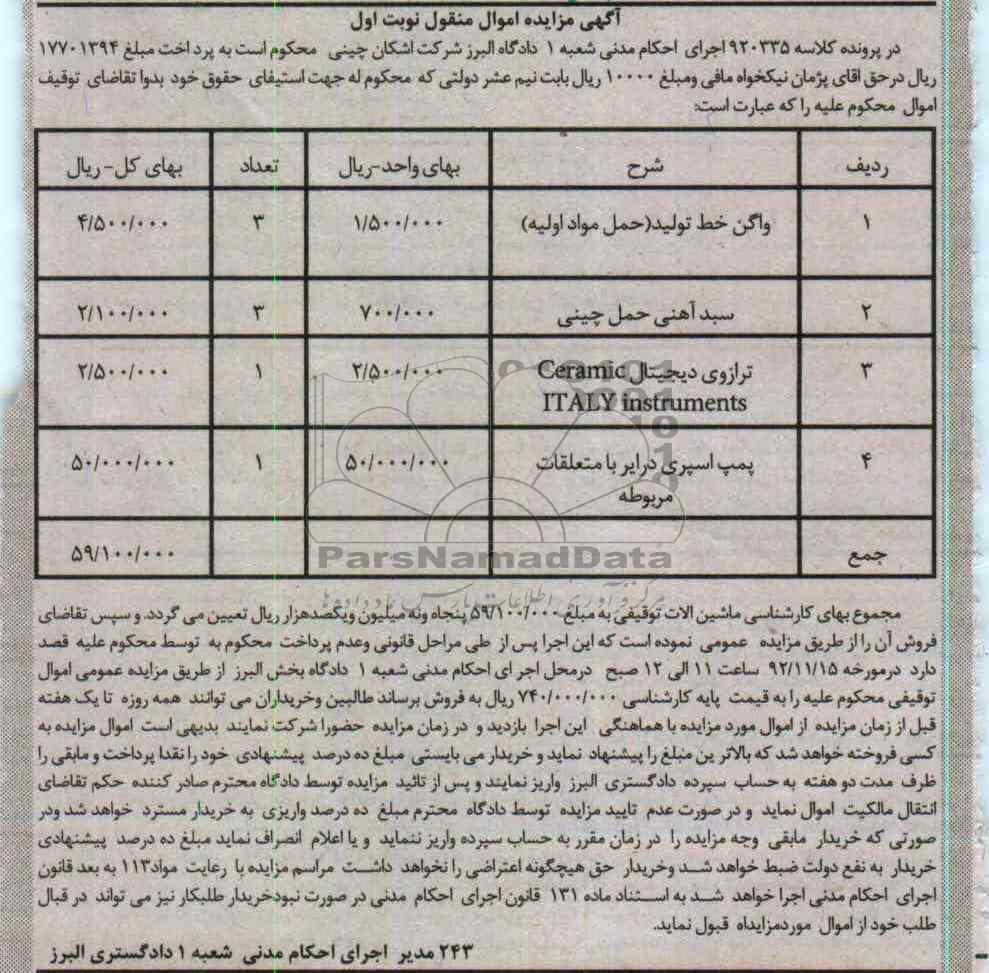 آگهی مزایده اموال منقول نوبت اول
در پرونده کلاسه ۹۲۰۳۳۵ اجرای احکام مدنی شعبه ۱ دادگاه البرز شرکت اشکان چینی محکوم است به پرداخت مبلغ ۱۷۷۰۱۳۹۴
ریال درحق اقای پژمان نیکخواه مافی ومبلغ ۱۰۰۰۰ ریال بابت نیم عشر دولتی که محکوم له جهت استیفای حقوق خود بدوا تقاضای توقیف
اموال محکوم علیه را که عبارت است:
ردیف شرح بهای واحد-ریال تعداد بهای کل- ریال
۱ واگن خط تولید(حمل مواد اولیه) ۱/۵۰۰/۰۰۰ ۳ ۴/۵۰۰/۰۰۰
۲ سبد آهنی حمل چینی ۷۰۰/۰۰۰ ۳ ۲/۱۰۰/۰۰۰
۳ ترازوی دیجیتال Ceramic ۲/۵۰۰/۰۰۰ ۱ ۲/۵۰۰/۰۰۰
ITALY instruments
۴ پمپ اسپری درایر با متعلقات ۵۰/۰۰۰/۰۰۰ ۱ ۵۰/۰۰۰/۰۰۰
مربوطه
جمع ۵۹/۱۰۰/۰۰۰
ParsNamadData
مجموع بهای کارشناسی ماشین الات توقیفی به مبلغ ۵۹/۱۰۰/۰۰۰ پنجاه ونه میلیون ویکصدهزار ریال تعیین می گردد. و سپس تقاضای
فروش آن را از طریق مزایده عمومی نموده است که این اجرا پس از طی مراحل قانونی وعدم پرداخت محکوم به توسط محکوم علیه قصد
دارد درمورخه ۹۲/۱۱/۱۵ ساعت ۱۱ الی ۱۲ صبح درمحل اجر ای احکام مدنی شعبه ۱ دادگاه بخش البرز از طریق مزایده عمومی اموال
توقیفی محکوم علیه را به قیمت پایه کارشناسی ۷۴۰/۰۰۰/۰۰۰ ریال به فروش برساند طالبین وخریداران می توانند همه روزه تا یک هفته
قبل از زمان مزایده از اموال مورد مزایده با هماهنگی این اجرا بازدید و در زمان مزایده حضورا شرکت نمایند بدیهی است اموال مزایده به
کسی فروخته خواهد شد که بالاتر ین مبلغ را پیشنهاد نماید و خریدار می بایستی مبلغ ده درصد پیشنهادی خود را نقدا پرداخت و مابقی را
ظرف مدت دو هفته به حساب سپرده دادگستری البرز واریز نمایند و پس از تائید مزایده توسط دادگاه محترم صادر کننده حکم تقاضای
انتقال مالکیت اموال نماید و در صورت عدم تایید مزایده توسط دادگاه محترم مبلغ ده درصد واریزی به خریدار مسترد خواهد شد ودر
صورتی که خریدار مابقی وجه مزایده را در زمان مقرر به حساب سپرده واریز ننماید و یا اعلام انصراف نماید مبلغ ده درصد پیشنهادی
خریدار به نفع دولت ضبط خواهد شد وخریدار حق هیچگونه اعتراضی را نخواهد داشت مراسم مزایده با رعایت مواد۱۱۳ به بعد قانون
اجرای احکام مدنی اجرا خواهد شد به استناد ماده ۱۳۱ قانون اجرای احکام مدنی در صورت نبودخریدار طلبکار نیز می تواند در قبال
طلب خود از اموال موردمزایداه قبول نماید.
۲۴۳ مدیر اجرای احکام مدنی شعبه ۱ دادگستری البرز